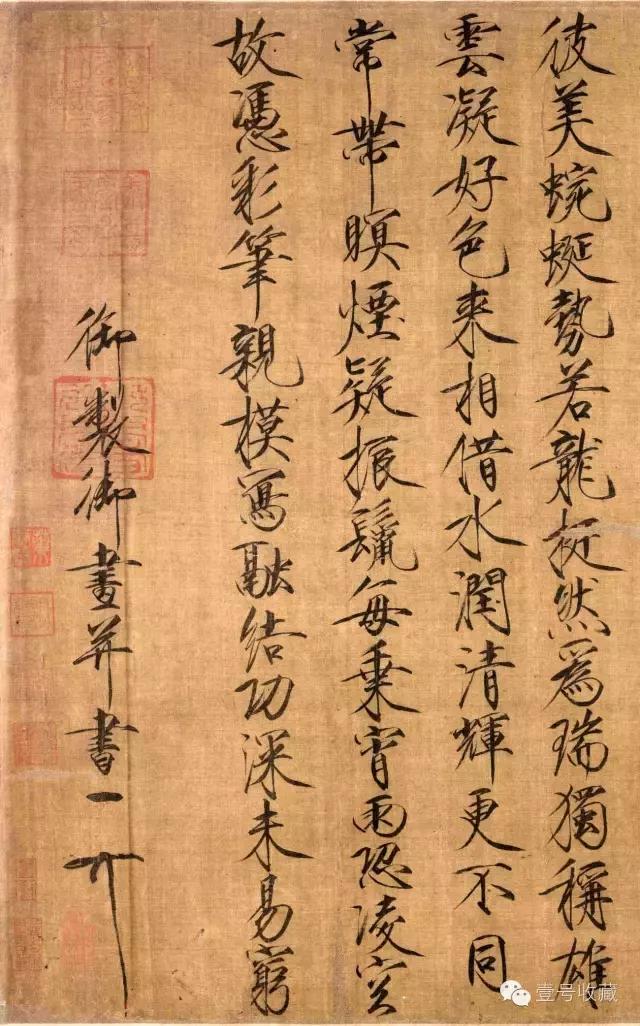 彼美蜿蜒勢若龍挺然爲瑞獨稱雄
雲凝好色來相借水潤清輝更不同
常帶瞑煙疑振鬣每乘宵雨恐凌空
故憑彩筆親模寫融結功深未易窮
御製御畫并書
壹号收藏